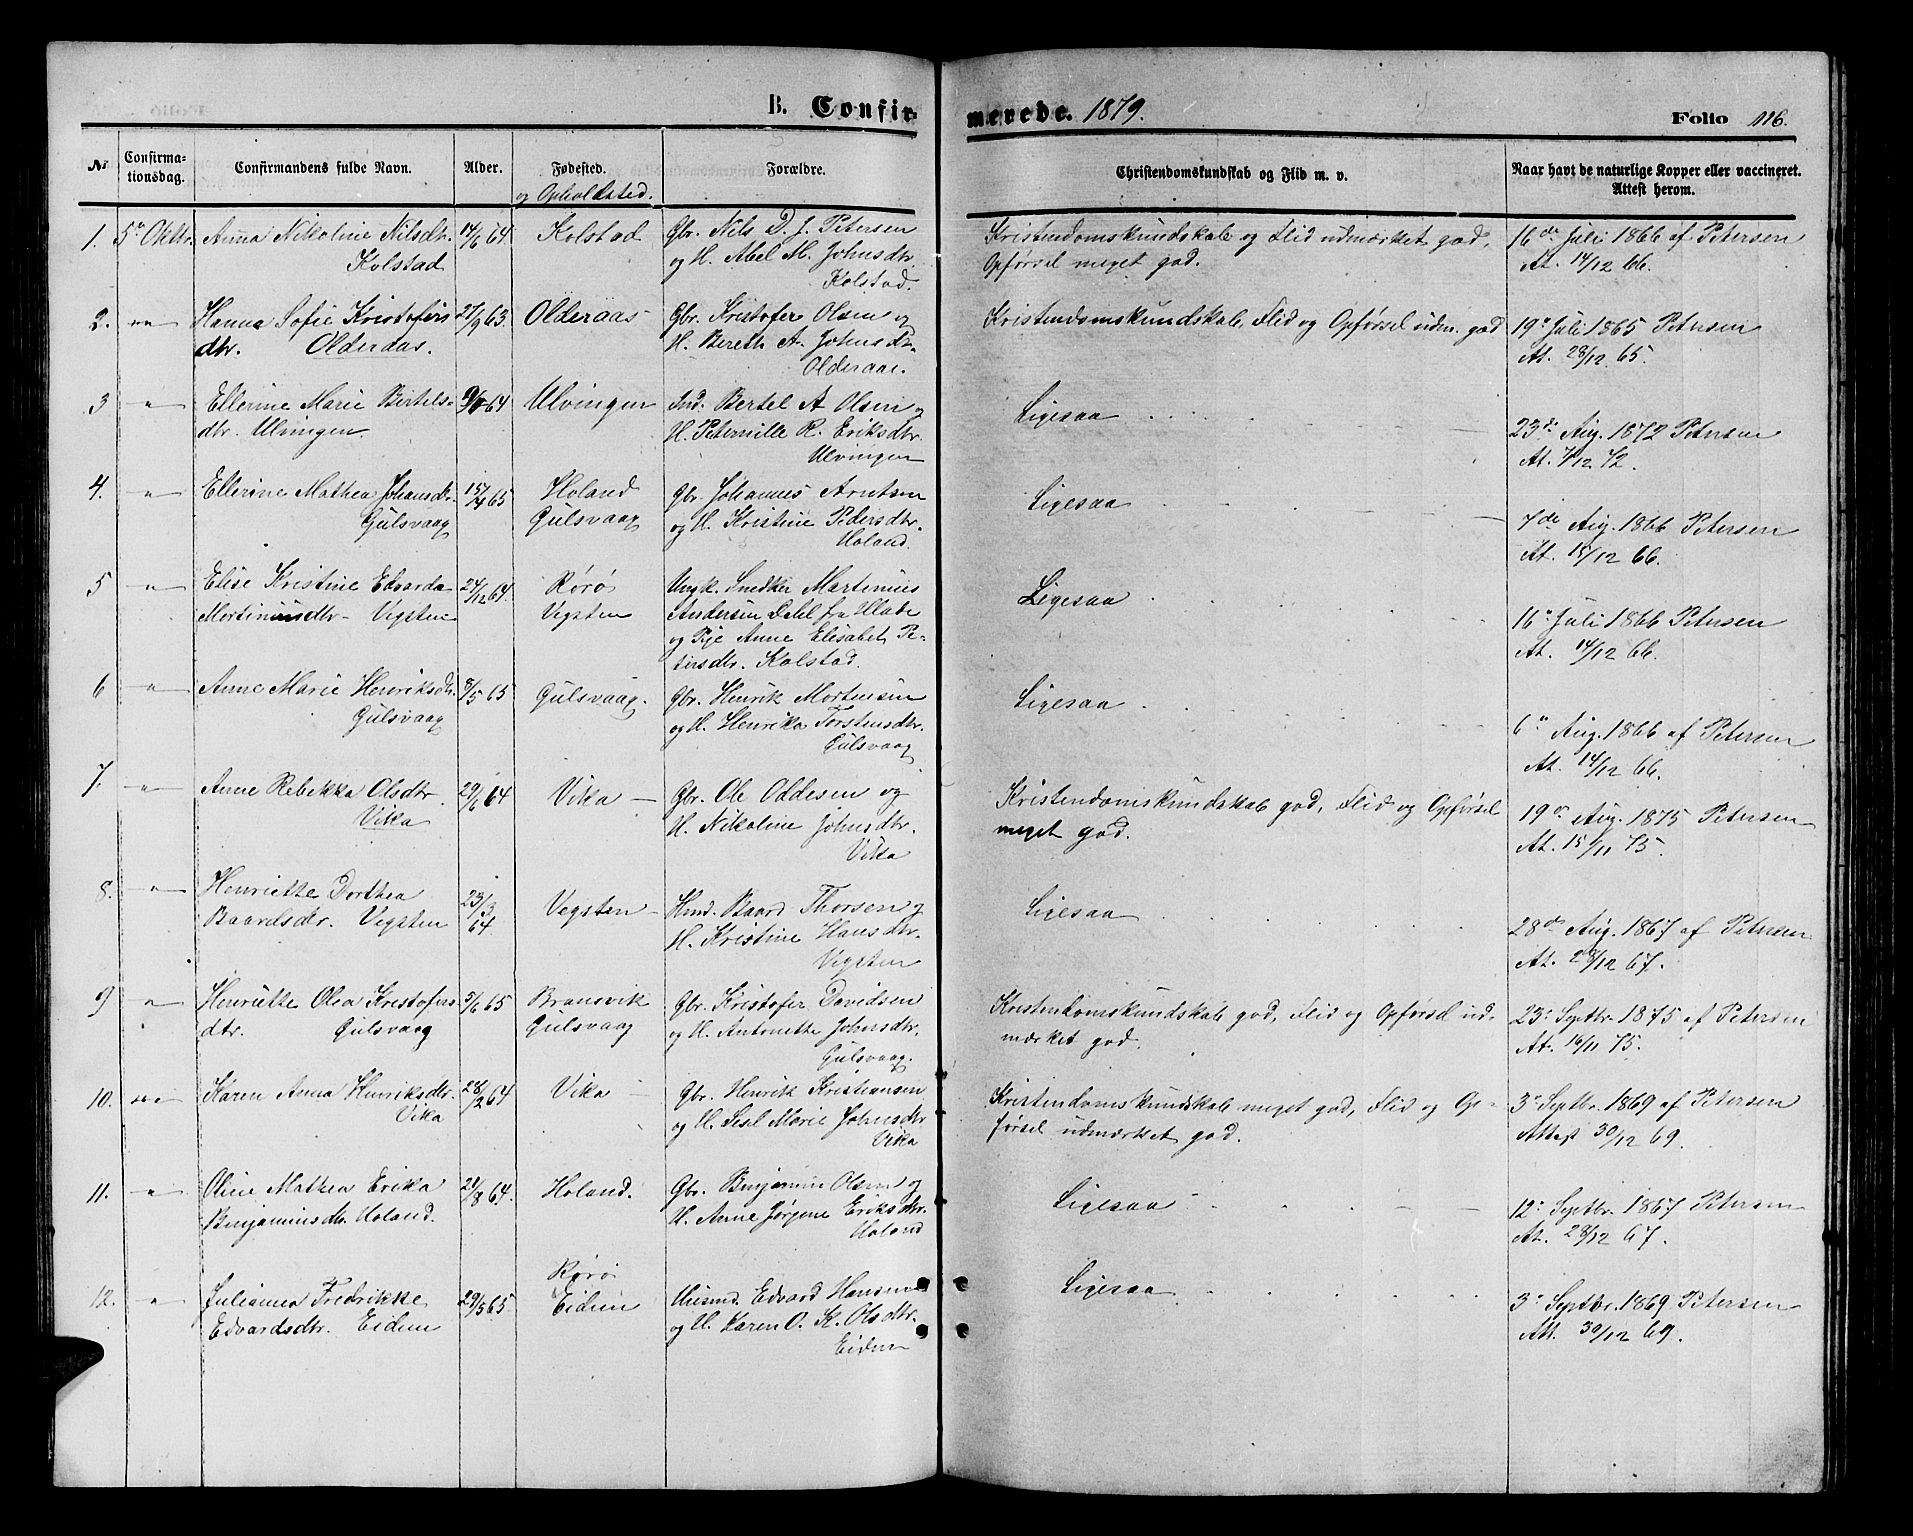 B. Confir-
merede. 1879.
Folio 116.
No
Confirma-
tionsdag.
Confirmandens fulde Navn.
Alder.
Fødested.
og Opholdsted.
Forældre.
Christendomskundskab og Flid m. v.
Naar havt de naturlige Kopper eller vaccineret.
Attest herom.
1. 5te Oktbr. Anna Nikoline Nilsdtr. 14/6 64. Kolstad Gbr. Nils D. J. Petersen Kristendomskundskab og Flid udmærket god, 16de Juli 1866 af Petersen
Kolstad og H. Abel M. Johnsdtr. Opførsel meget god. At. 14/12 66.
Kolstad.
2. "" Hanna Sofie Kristofers 27/9 63. Olderaas Gbr. Kristofer Olsen og Kristendomskundskab, Flid og Opførsel udm. god 19de Juli 1865 Petersen
dtr. Olderaas. H. Bereth A. Johnsdtr. At. 28/12 65.
Olderaas.
3 " Ellerine Marie Bertels- 64 Ulvingen Ind. Bertel A. Olsen og Ligesaa
dtr. Ulvingen. H. Peternille R. Eriksdtr. 23de Aug. 1872 Petersen
Ulvingen At. 7/12 72.
4. " Ellerine Mathea Johansdtr. 15/4 65 Holand Gbr. Johannes Arntsen Ligesaa
Gulsvaag Gulsvaag og H. Kristine Pedersdtr. 7de Aug. 1866 Petersen
Holand. At. 15/12 66.
5 " Elise Kristine Edvarda 24/12 64. Rørø Ungk. Snedker Martinius Ligesaa
Martiniusdtr. Vegsten Vegsten Andersen Dahl fra
og Pige Anne Elisabet Pe- 16de Juli 1866 Petersen
tersdtr. Kolstad. At. 14/12 66.
6 " Anne Marie Henriksdtr. 8/5 65 Gulsvaag. Gbr. Henrik Mortensen Ligesaa
Gulsvaag og H. Henrika Torstensdtr. 6te Aug. 1866 af Petersen
Gulsvaag At. 14/12 66.
7. " Anne Rebekka Olsdtr. 29/6 64 Vika Gbr. Ole Oddesen og Kristendomskundskab god, Flid og Opførsel 19de Aug. 1875 Petersen
Vika H. Nikoline Johnsdtr. meget god. At. 15/11 75.
Vika
8. " Henriette Dorthea 23/3 64 Vegsten Hmd. Baard Thorsen og Ligesaa
Baardsdtr. Vegsten H. Kristine Hansdtr. 28de Aug. 1867 af Petersen
Vegsten At. 28/12 67.
9 " Henriette Olea Kristofers 5/6 65 Bransvik Gbr. Kristofer Davidsen Kristendomskundskab god, Flid og Opførsel ud- 23de Septbr. 1875 af Petersen
dtr. Gulsvaag Gulsvaag og H. Antonette Johnsdtr. mærket god. At. 16/11 75.
Gulsvaag.
10. "" Karen Anna Henriksdtr. 28/2 64 Vika Gbr. Henrik Kristiansen Kristendomskundskab meget god, Flid og Op- 3de Septbr. 1869 af Petersen
Vika og H. Sesl Marie Johnsdtr. førsel udmærket god. Attest 30/12 69.
Vika
11. " Oline Mathea Erika 21/8 64. Holand. Gbr. Benjamin Olsen og Ligesaa
Benjaminsdtr. Holand. H. Anne Jørgine Eriksdtr. 12te Septbr. 1867 Petersen
Holand At. 28/12 67.
12. " Julianna Fredrikke 29/5 65. Rørø Husmd. Edvard Hansen Ligesaa
Edvardsdtr. Eidem Eidem og H. Karen O. K. Olsdtr. 3de Septbr. 1869 Petersen
Eidem At. 30/12 69.